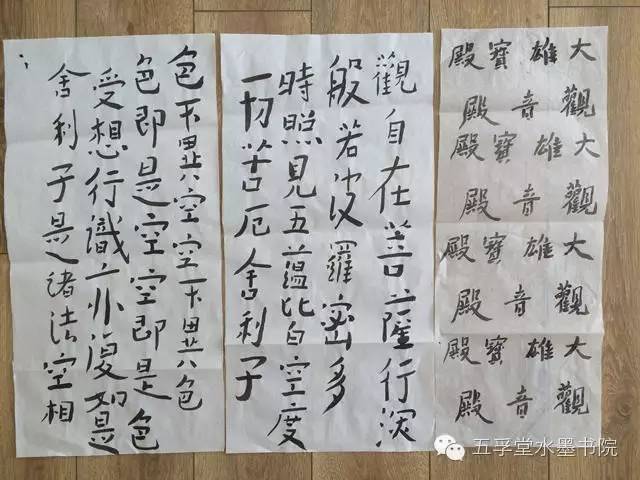 大雄寶殿
觀音殿
大雄寶殿
觀音殿
大雄寶殿
觀音殿
大雄寶殿
觀音殿
觀自在菩薩行深
般若波羅密多
時照見五蘊皆空度
一切苦厄舍利子
色不異空空不異色
色即是空空即是色
受想行識亦復如是
舍利子是諸法空相
五孚堂水墨书院